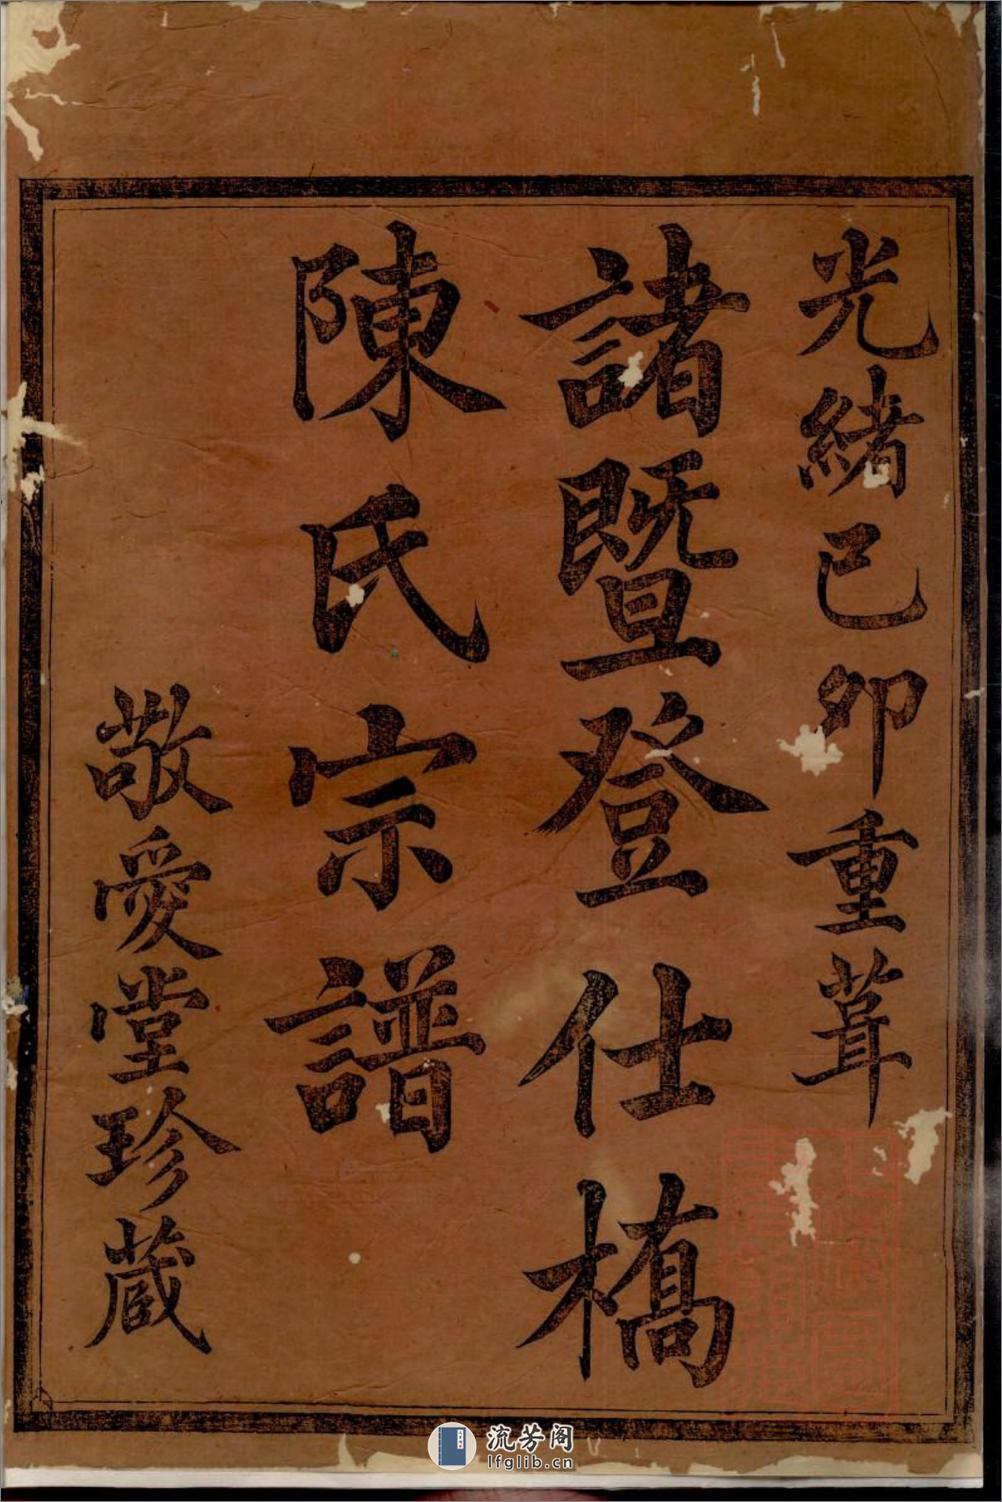 光緒己卯重葺
諸暨登仕橋
陳氏宗譜
敬愛堂珍藏
流芳阁
lfglib.cn